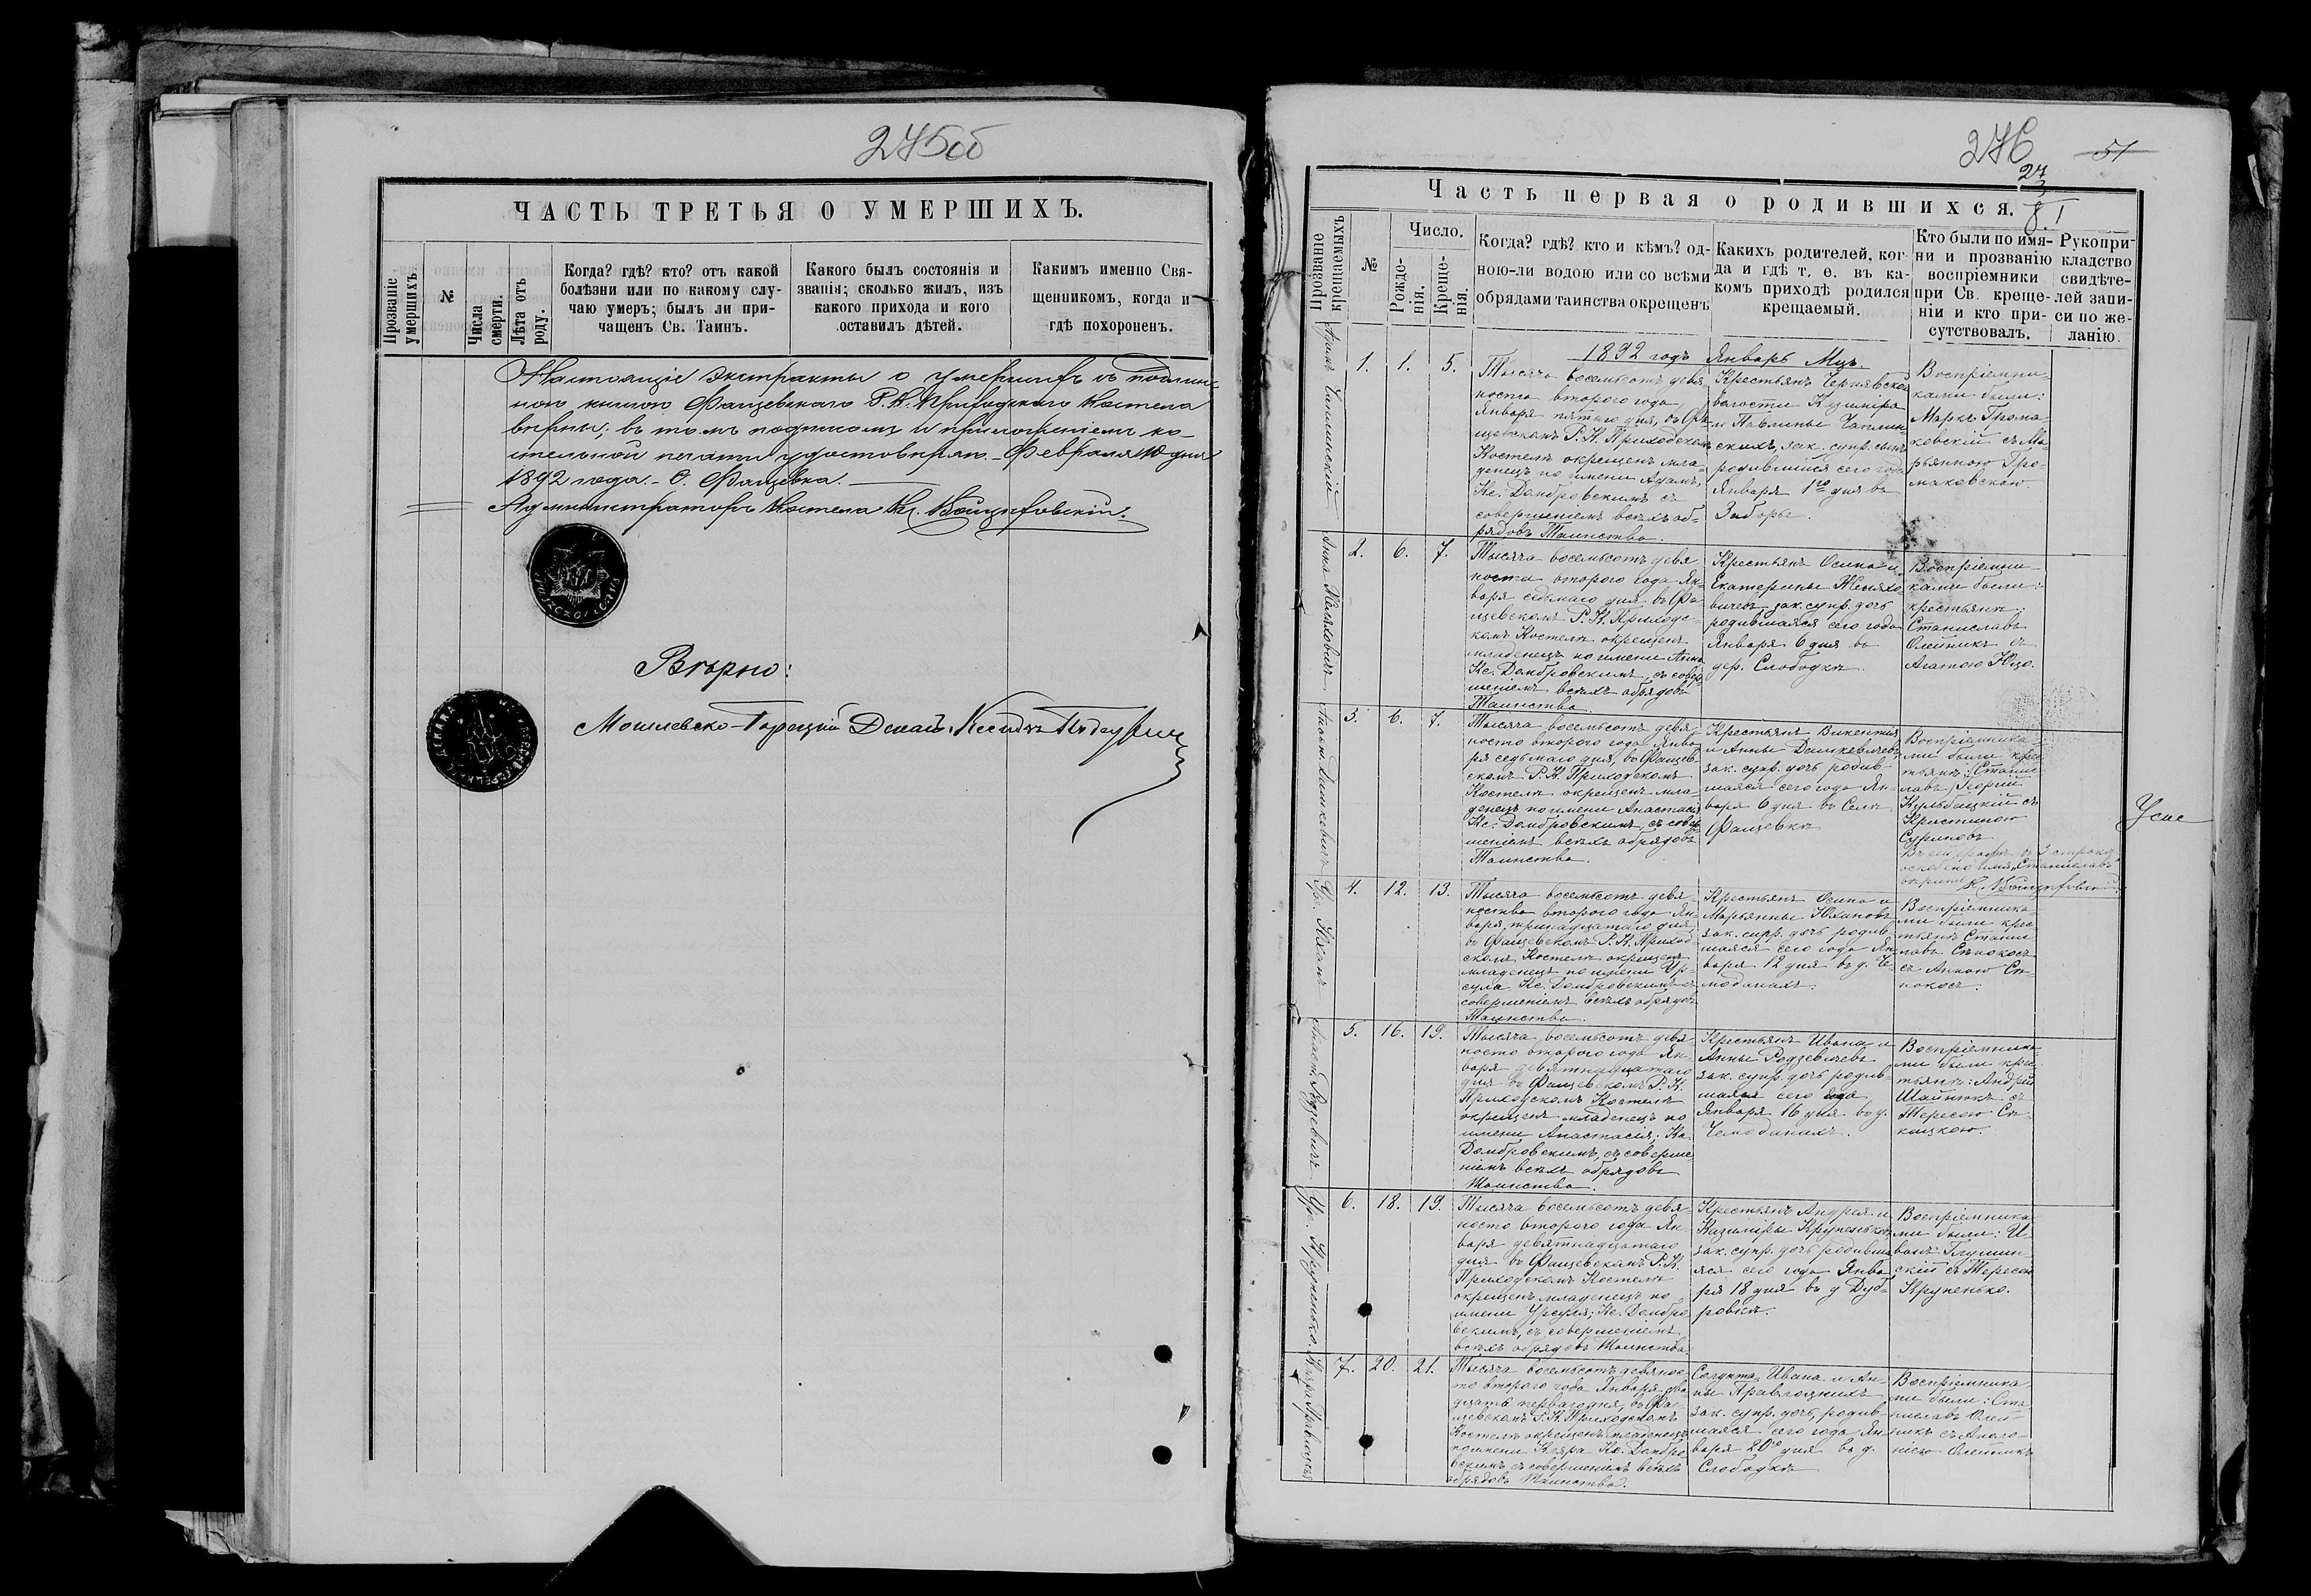 275об
ЧАСТЬ ТРЕТЬЯ О УМЕРШИХЪ.
Прозваніе умершихъ.
№
Числа смерти.
Лѣта отъ роду.
Когда? гдѣ? кто? отъ какой
болѣзни или по какому слу-
чаю умеръ; былъ ли при-
чащенъ Св. Таинъ.
Какого былъ состоянія и
званія; сколько жилъ, изъ
какого прихода и кого
оставилъ дѣтей.
Какимъ именно Свя-
щенникомъ, когда и
гдѣ похороненъ.
Настоящіе экстракты о умершихъ съ подлин-
ною книгою Фащевскаго Р. К. Приходскаго Костела
вѣрны; въ томъ подписомъ и приложеніемъ ко-
стельной печати удостовѣряю. Февраля 10 дня
1892 года. С. Фащевка.
Администраторъ Костела
Вѣрно:
Могилевско-Горецкій Деканъ Ксендзъ
276
51
27
Часть первая о родившихся.
Прозваніе крещаемыхъ
№
Число.
Рожде-
нія.
Креще-
нія.
Когда? гдѣ? кто и кѣмъ? од-
ною-ли водою или со всѣми
обрядами таинства окрещенъ
Какихъ родителей, ког-
да и гдѣ т. е. въ ка-
комъ приходѣ родился
крещаемый.
Кто были по имя-
ни и прозванію
воспріемники
при Св. креще-
ніи и кто при-
сутствовалъ.
Рукопри-
кладство
свидѣте-
лей запи-
си по же-
ланію.
1892 годъ Январь Мцъ.
1. 1. 5.
Тысяча восемьсотъ девя-
носто второго года
Января пятаго дня, въ Фа-
щевскомъ Р. К. Приходском
Костелѣ окрещенъ мла-
денецъ по имени Адамъ,
Кс. Домбровскимъ съ
совершеніемъ всѣхъ об-
рядовъ Таинства.
Крестьянъ Чернявской
волости Казиміра
и Павлины Чаплин
скихъ, зак. супр. сынъ
родившійся сего года
Января 1го дня въ
Заборье.
Воспріемни-
ками были:
Маркъ Грома-
ковскій съ Ма-
рьянною Гро-
маковскою
Анна Женяховичъ
2. 6. 7.
Тысяча восемьсотъ девя
носта второго года Ян-
варя седьмаго дня въ Фа
щевскомъ Р. К. Приходс-
комъ Костелѣ окрещенъ
младенецъ по имени Анна
Кс. Домбровскимъ, съ совер-
шеніемъ всѣхъ обрядовъ
Таинства.
Крестьянъ Осипа и
Екатерины Женяхо
вичевъ зак. супр. дочь
родившаяся сего года
Января 6 дня въ
дер. Слободкѣ.
Воспріемни-
ками были:
крестьяне:
Станиславъ
Олейникъ съ
Агатою Юцо.
3. 6. 7.
Тысяча восемьсотъ девя
носто второго года Янва
ря седьмаго дня, въ Фащев-
скомъ Р. К. Приходскомъ
Костелѣ окрещенъ мла-
денецъ по имени Анастасія
Кс. Домбровскимъ, съ совер
шеніемъ всѣхъ обрядовъ
Таинства.
Крестьянъ Викентія
и Анны Дашкевичевъ
зак. супр. дочь родив-
шаяся сего года Ян-
варя 6 дня въ Селѣ
Фащевкѣ
Воспріемника-
ми были крес
тьяне: Станис-
лавъ Георгій
Кульбацкій съ
Кристиною
4. 12. 13.
Тысяча восемьсотъ девя-
носто второго года Ян-
варя, тринадцатаго дня
въ Фащевскомъ Р. К. Приход-
скомъ Костелѣ окрещенъ
младенецъ по имени Ур-
сула Кс. Домбровскимъ съ
совершеніемъ всѣхъ обрядовъ
Таинства.
Крестьянъ Осипа и
Марьянны Юхановъ
зак. супр. дочь родив-
шаяся сего года Ян-
варя 12 дня въ д. Че-
моданахъ.
Воспріемника-
ми были крес
тьяне Станис
лавъ Сѣнокосъ
съ Анною Сѣ-
нокосъ.
5. 16. 19.
Тысяча восемьсотъ девя-
носто второго года Ян-
варя девятнадцатаго
дня въ Фащевскомъ Р. К.
Приходскомъ Костелѣ
окрещенъ младенецъ по
имени Анастасія; Кс.
Домбровскимъ, съ соверше-
ніемъ всѣхъ обрядовъ
Таинства.
Крестьянъ Ивана и
Анны Родзевичевъ
зак. супр. дочь родив-
шаяся сего года
Января 16 дня въ д.
Чемоданахъ.
Воспріемника-
ми были крес-
тьяне: Андрей
съ
Тересою
6. 18. 19.
Тысяча восемьсотъ девя-
носто второго года Ян-
варя девятнадцатаго
дня въ Фащевскомъ Р. К.
Приходскомъ Костелѣ
окрещенъ младенецъ по
имени Урсуля; Кс. Домбро
вскимъ, съ совершеніемъ
всѣхъ обрядовъ Таинства.
Крестьянъ Андрея и
Казиміры Крупенько
зак. супр. дочь родивша
яся сего года Янва
ря 18 дня въ д Дуб-
ровкѣ.
Воспріемника
ми были: И-
ванъ Глушин-
скій съ Тересою
Крупенько.
7. 20. 21.
Тысяча восемьсотъ девянос-
то второго года Января два
дцать перваго дня, въ Фа-
щевскомъ Р. К. Приходскомъ
Костелѣ окрещенъ младенецъ
по имени Кляра Кс. Домбро-
вскимъ, съ совершеніемъ всѣхъ
обрядовъ Таинства.
Солдата Ивана и Ан-
ны
зак. супр. дочь, родив-
шаяся сего года Ян
варя 20го дня въ д.
Слободкѣ
Воспріемника
ми были: Ста
ниславъ Олей-
никъ съ Аполо-
ніею Олейникъ